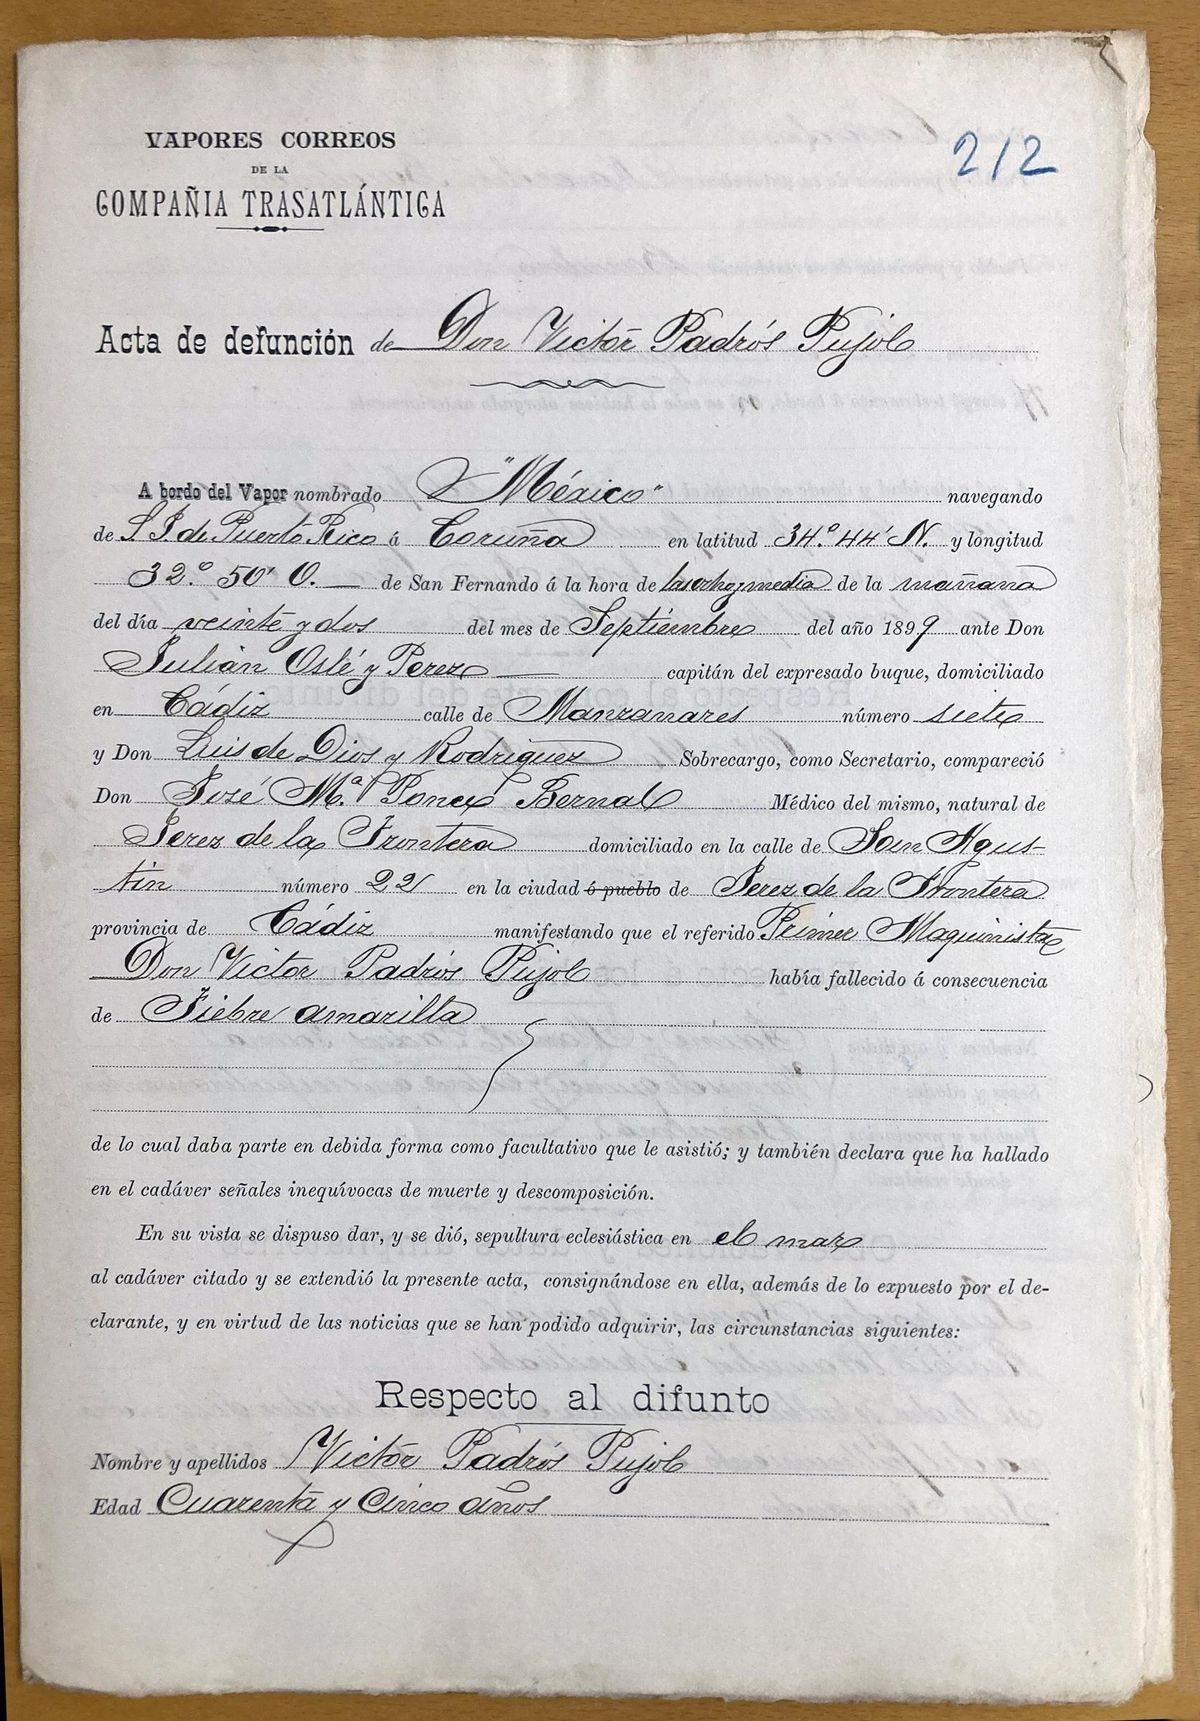 VAPORES CORREOS
DE LA
COMPAÑIA TRASATLÁNTICA
212
Acta de defunción de Don Victor Padrós Pujol
A bordo del Vapor nombrado "México" navegando
de S. J. de Puerto Rico á Coruña en latitud 34.º 44' N. y longitud
32.º 50' O. de San Fernando á la hora de las ocho y media de la mañana
del día veinte y dos del mes de Septiembre del año 1899 ante Don
Julián Oslé y Perez capitán del expresado buque, domiciliado
en Cádiz calle de Manzanares número siete
y Don Luis de Dios y Rodriguez Sobrecargo, como Secretario, compareció
Don José M.ª Ponce Bernal Médico del mismo, natural de
Jerez de la Frontera domiciliado en la calle de San Agus-
tin número 22 en la ciudad ó pueblo de Jerez de la Frontera
provincia de Cádiz manifestando que el referido Primer Maquinista
Don Victor Padrós Pujol había fallecido á consecuencia
de Fiebre amarilla
de lo cual daba parte en debida forma como facultativo que le asistió; y también declara que ha hallado
en el cadáver señales inequívocas de muerte y descomposición.
En su vista se dispuso dar, y se dió, sepultura eclesiástica en el mar
al cadáver citado y se extendió la presente acta, consignándose en ella, además de lo expuesto por el de-
clarante, y en virtud de las noticias que se han podido adquirir, las circunstancias siguientes:
Respecto al difunto
Nombre y apellidos Victor Padrós Pujol
Edad Cuarenta y Cinco años